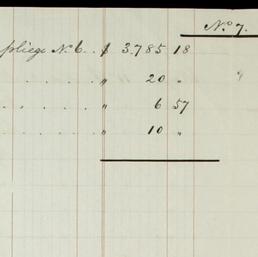 No. 7.
pliego N. 6 . . $ 3.785 18
. . . . . " 20 "
. . . . . " 6 57
. . . . . " 10 "